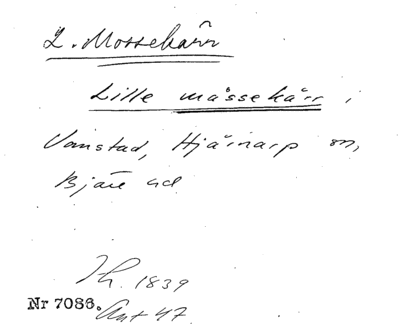 L. Mossekärr
Lille måssekärr i
Vanstad, Hjärnarp sn,
Bjäre hd
Th. 1839
Nr 7086. Ant 47